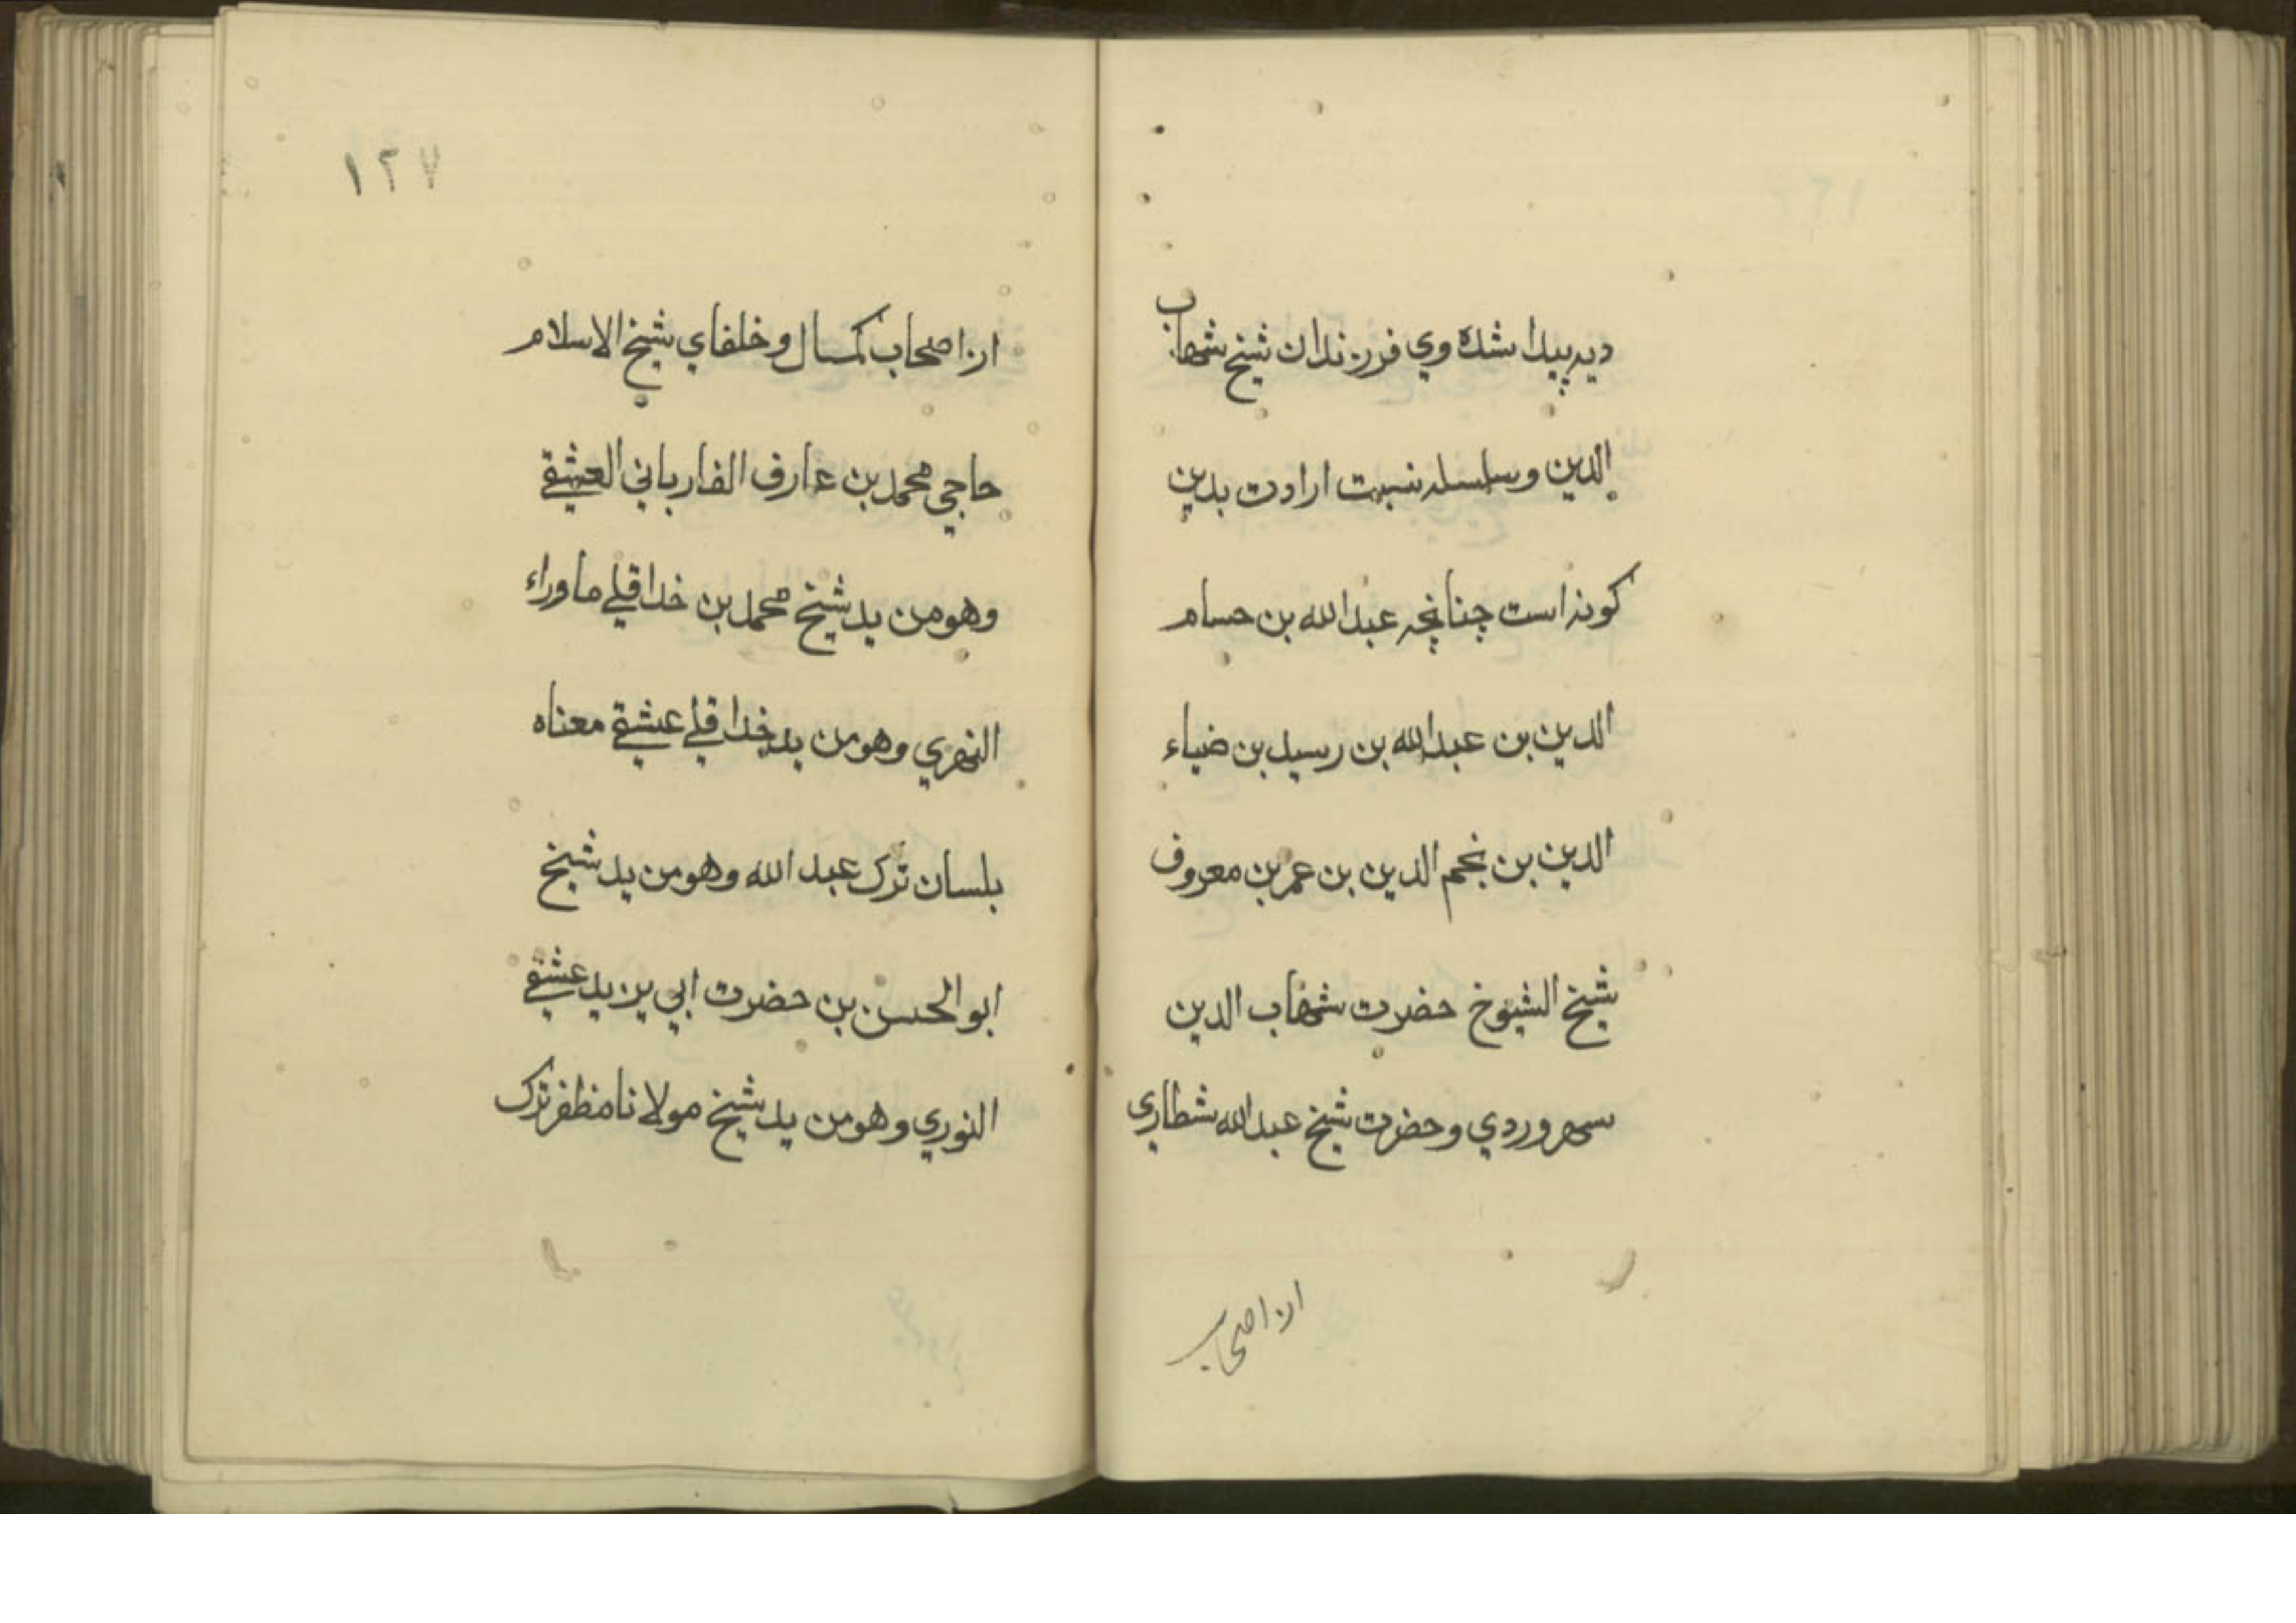 دیه پیدا شده وي فررندان شيخ شهاب
الدين وسلسله نسبت ارادت بدين
كونه است چنانچه عبدالله بن حسام
الدين بن عبدالله بن رسيد بن ضياء
الدين بن نجم الدين بن عمر بن معروف
شيخ الشيوخ حضرت شهاب الدين
سهروردي وحضرت شيخ عبدالله شطاري
از اصحاب
١٢٧
از اصحاب كمال وخلفاي شيخ الاسلام
حاجي محمد بن عارف الفارباني العشقي
وهو من يد شيخ محمد بن خداقلي ماوراء
النهري وهو من يد خداقلي عشقي معناه
بلسان ترك عبد الله وهو من يد شيخ
ابو الحسن بن حضرت ابي يزيد عشقي
النوري وهو من يد شيخ مولانا مظفر ترك